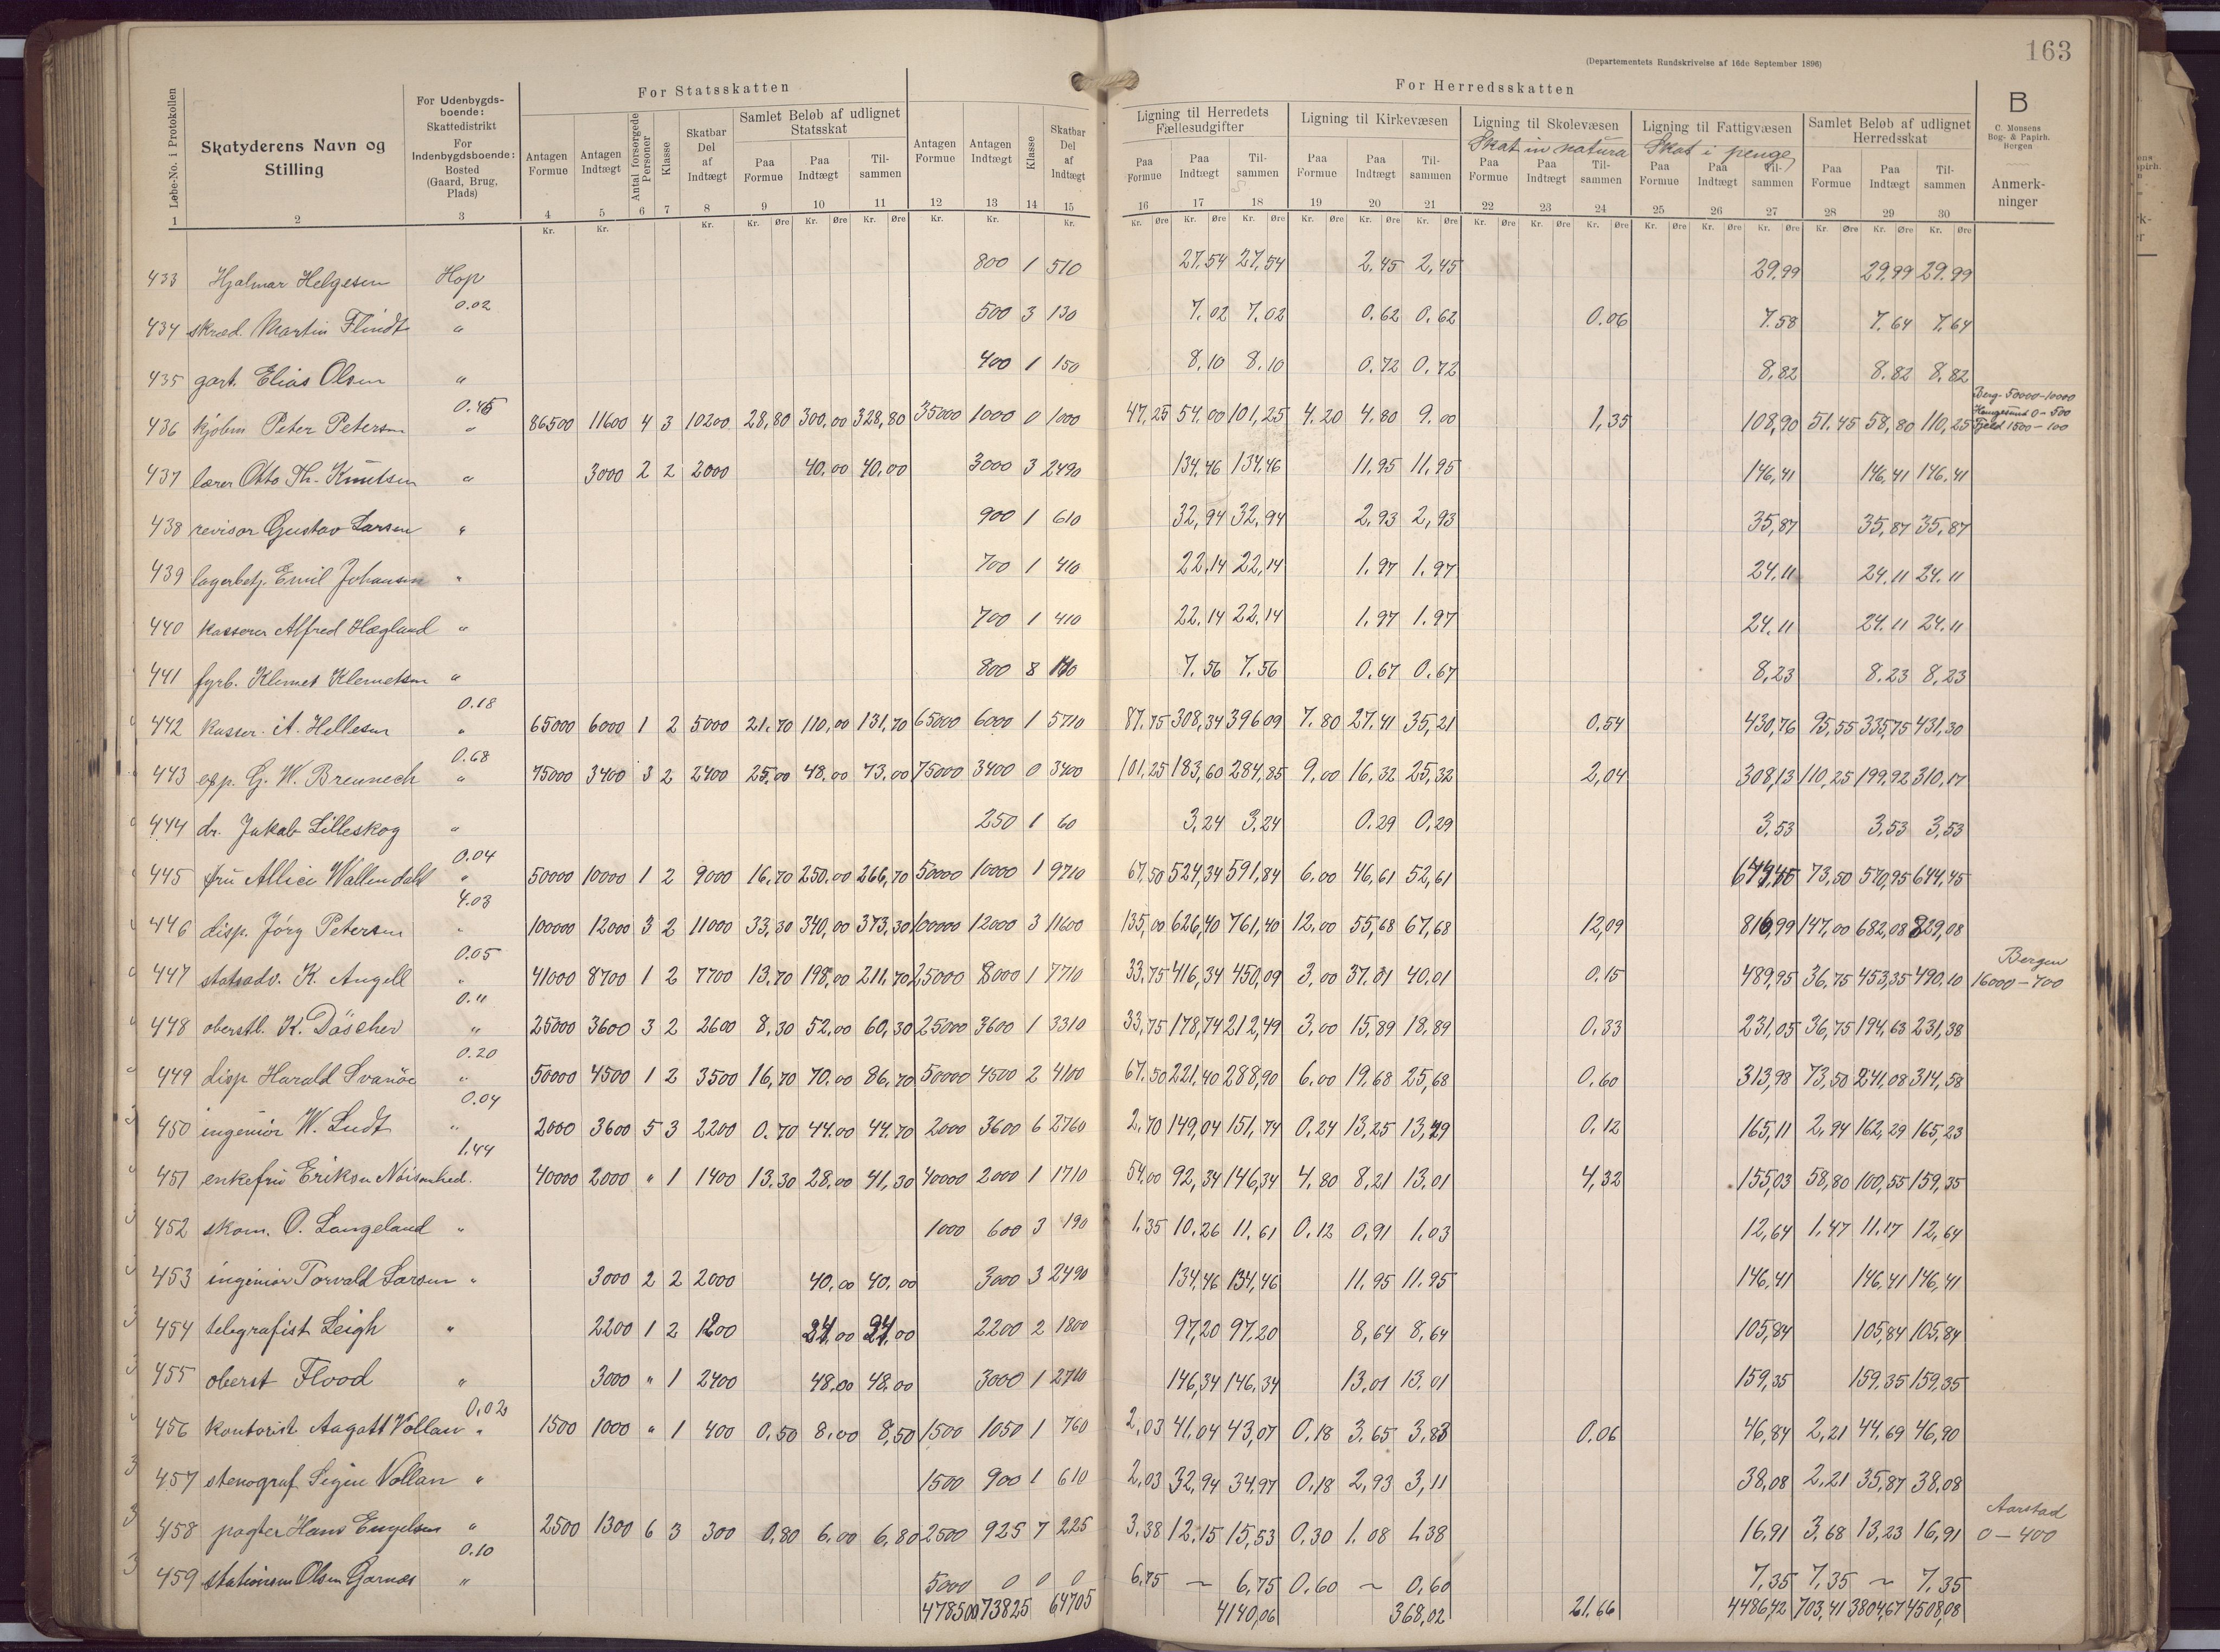 163
(Departementets Rundskrivelse af 16de September 1896)
For Statsskatten
For Herredsskatten
B
C. Monsens Bog- & Papirh. Bergen
Anmerkninger
Løbe-No. i Protokollen
Skatyderens Navn og Stilling
For Udenbygdsboende: Skattedistrikt For Indenbygdsboende: Bosted (Gaard, Brug, Plads)
Antagen Formue
Antagen Indtægt
Antal forsørgede Personer
Klasse
Skatbar Del af Indtægt
Samlet Beløb af udlignet Statsskat
Paa Formue Paa Indtægt Tilsammen
Antagen Formue
Antagen Indtægt
Klasse
Skatbar Del af Indtægt
Ligning til Herredets Fællesudgifter
Paa Formue Paa Indtægt Tilsammen
Ligning til Kirkevæsen
Paa Formue Paa Indtægt Tilsammen
Ligning til Skolevæsen
Skat in natura
Paa Formue Paa Indtægt Tilsammen
Ligning til Fattigvæsen
Skat i penge
Paa Formue Paa Indtægt Tilsammen
Samlet Beløb af udlignet Herredsskat
Paa Formue Paa Indtægt Tilsammen
1 2 3 4 5 6 7 8 9 10 11 12 13 14 15 16 17 18 19 20 21 22 23 24 25 26 27 28 29 30
433 Hjalmar Helgesen Hop 800 1 510 27,54 27,54 2,45 2,45 29.99 29.99 29.99
0.02
434 skræd. Martin Flindt " 500 3 130 7.02 7.02 0.62 0.62 0.06 7.58 7.64 7.64
435 gart. Elias Olsen " 400 1 150 8,10 8.10 0.72 0.72 8,82 8.82 8.82
0.45
436 kjøbm Peter Petersen " 86500 11600 4 3 10200 28,80 300,00 328,80 35000 1000 0 1000 47,25 54,00 101,25 4.20 4.80 9.00 1,35 108,90 51.45 58,80 110,25 Berg. 50000-10000 Haugesund 0-500 Fjeld 1500-100
437 lærer Otto Th. Knutsen " 3000 2 2 2000 40,00 40,00 3000 3 2490 134,46 134,46 11,95 11,95 146,41 146,41 146,41
438 revisor Gustav Larsen " 900 1 610 32,94 32,94 2,93 2,93 35,87 35,87 35,87
439 lagerbetj. Emil Johansen " 700 1 410 22,14 22,14 1.97 1.97 24,11 24.11 24.11
440 kasserer Alfred Hægland " 700 1 410 22,14 22,14 1.97 1.97 24,11 24.11 24.11
441 fyrb. Klemet Klemetsen " 800 8 7.56 7,56 0.67 0.67 8,23 8.23 8,23
0.18
442 kasser. A. Hellesen " 65000 6000 1 2 5000 21,70 110,00 131,70 65000 6000 1 5710 87.75 308,34 396,09 7.80 27,41 35,21 0,54 430,76 95,55 335,75 431,30
0.68
443 exp. G. W. Brennech " 75000 3400 3 2 2400 25,00 48,00 73,00 75000 3400 0 3400 101,25 183,60 284,85 9,00 16,32 25,32 2,04 308,13 110,25 199,92 310,17
444 dr. Jakab Lilleskog " 250 1 60 3,24 3,24 0.29 0,29 3,53 3,53 3,53
0.04
445 fru Allice Wallendahl " 50000 10000 1 2 9000 16,70 250,00 266,70 50000 10000 1 9710 67,50 524,34 591,84 6.00 46,61 52,61 73,50 570,95 644,45
4.03
446 disp. Jörg Petersen " 100000 12000 3 2 11000 33,30 340,00 373,30 100000 12000 3 11600 135,00 626,40 761,40 12,00 55,68 67,68 12,09 816,99 147,00 682,08 829,08
0.05
447 statsadv. K. Angell " 41000 8700 1 2 7700 13,70 198,00 211,70 25000 8000 1 7710 33,75 416,34 450,09 3,00 37.01 40,01 0.15 489,95 36,75 453,35 490,10 Bergen 16000-700
0.11
448 oberstl. K. Döscher " 25000 3600 3 2 2600 8,30 52,00 60,30 25000 3600 1 3310 33,75 178,74 212,49 3,00 15,89 18,89 0.33 231,05 36,75 194,63 231,38
0.20
449 disp Harald Svanöe " 50000 4500 1 2 3500 16,70 70,00 86,70 50000 4500 2 4100 67.50 221,40 288,90 6.00 19,68 25,68 0.60 313,98 73,50 241,08 314,58
0.04
450 ingeniör W. Ludt " 2000 3600 5 3 2200 0.70 44,00 44,70 2000 3600 6 2760 2,70 149,04 151,74 0.24 13,25 13,49 0,12 165,11 2,94 162,29 165,23
1.44
451 enkefru Eriksen Nöisomhed. 40000 2000 " 1 1400 13,30 28,00 41,30 40000 2000 1 1710 54,00 92,34 146,34 4,80 8,21 13,01 4,32 155,03 58,80 100,55 159,35
452 skom. O. Langeland " 1000 600 3 190 1,35 10,26 11,61 0.12 0,91 1.03 12,64 1,47 11,17 12,64
453 ingeniör Torvald Larsen " 3000 2 2 2000 40,00 40,00 3000 3 2490 134,46 134,46 11,95 11.95 146,41 146,41 146,41
454 telegrafist Leigh " 2200 1 2 1200 24,00 24,00 2200 2 1800 97,20 97,20 8,64 8,64 105,84 105,84 105,84
455 oberst Flood " 3000 " 1 2400 48,00 48,00 3000 1 2710 146,34 146,34 13,01 13,01 159,35 159,35 159,35
0.02
456 kontorist Aagatt Vollan " 1500 1000 " 1 400 0,50 8,00 8,50 1500 1050 1 760 2,03 41,04 43,07 0.18 3.65 3,83 0.06 46,84 2,21 44,69 46,90
457 stenograf Signe Vollan " 1500 900 1 610 2,03 32,94 34,97 0.18 2,93 3,11 38,08 2,21 35,87 38,08
458 pagter Hans Engelsen " 2500 1300 6 3 300 0,80 6,00 6,80 2500 925 7 225 3,38 12,15 15,53 0.30 1.08 1.38 16,91 3,68 13,23 16,91 Aarstad 0-400
0.10
459 stationsm Olsen Garnæs " 5000 0 0 0 6,75 ~ 6,75 0.60 ~ 0,60 7,35 7,35 ~ 7.35
478500 73825 64705 4140,06 368,02 21,66 4486,42 703,41 3804,67 4508,08